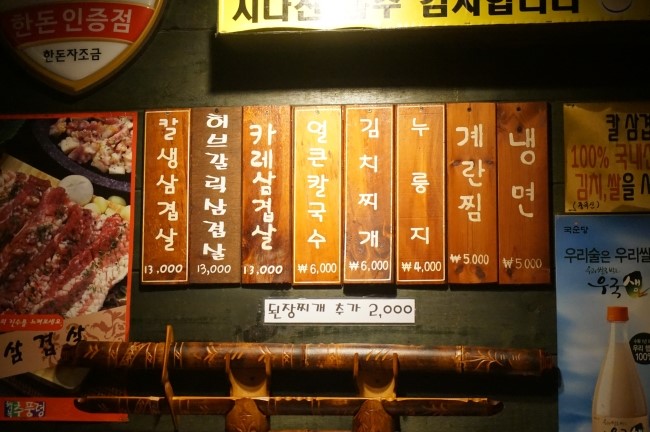 한돈인증점
한돈자조금
칼생삼겹살
13,000
허브갈릭삼겹살
13,000
카레삼겹살
13,000
얼큰칼국수
₩6,000
김치찌개
₩6,000
누룽지
₩4,000
계란찜
₩5.000
냉면
₩5.000
된장찌개 추가 2,000
칼삼겹
100% 국내산
김치,쌀을 사
국순당
우리술은 우리쌀
우국생
삼겹살